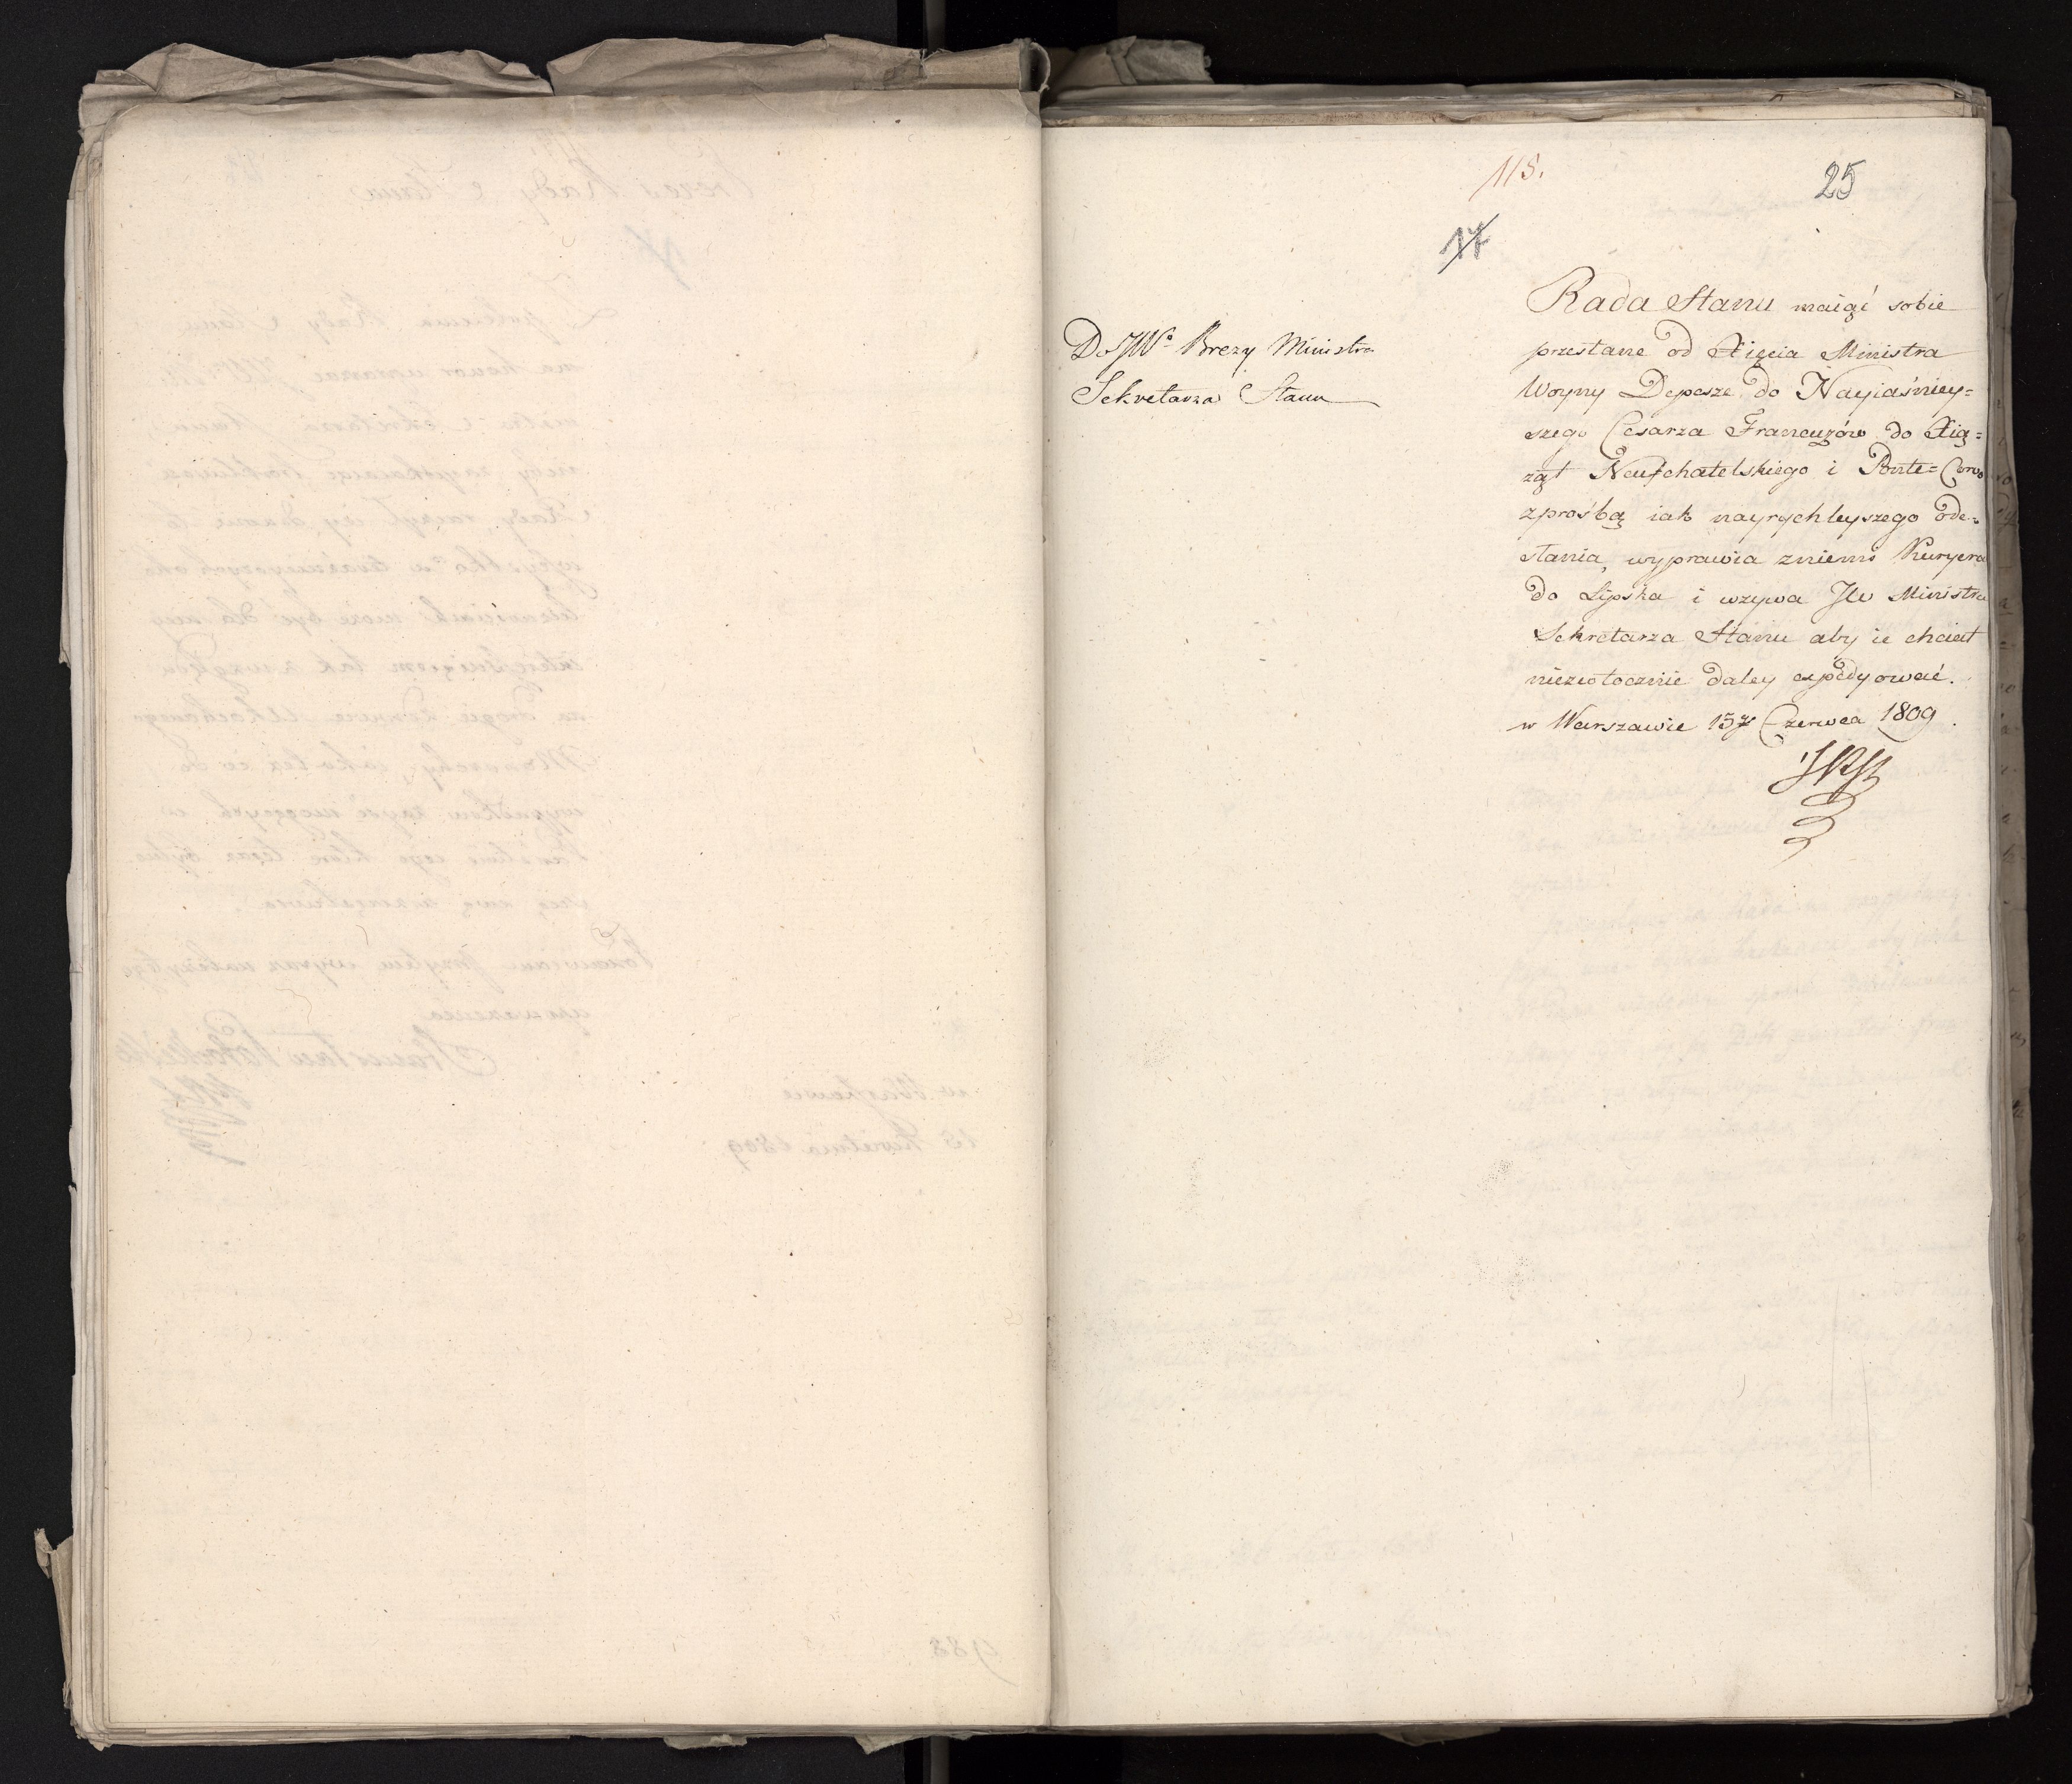 115.
25
17
Do JWo Brezy Ministra
Sekretarza Stanu
Rada Stanu maiąć sobie
przesłane od Xięcia Ministra
Woyny Depesze do Nayiaśniey=
szego Cesarza Francuzów do Xią=
żąt Neufchatelskiego i Ponte=Corvo
z prośbą iak nayrychleyszego ode=
słania, wyprawia z niemi Kuryera
do Lipska i wzywa JW Ministra
Sekretarza Stanu aby ie chciał
niezwłocznie daley expedyować.
w Warszawie 15 Czerwca 1809.